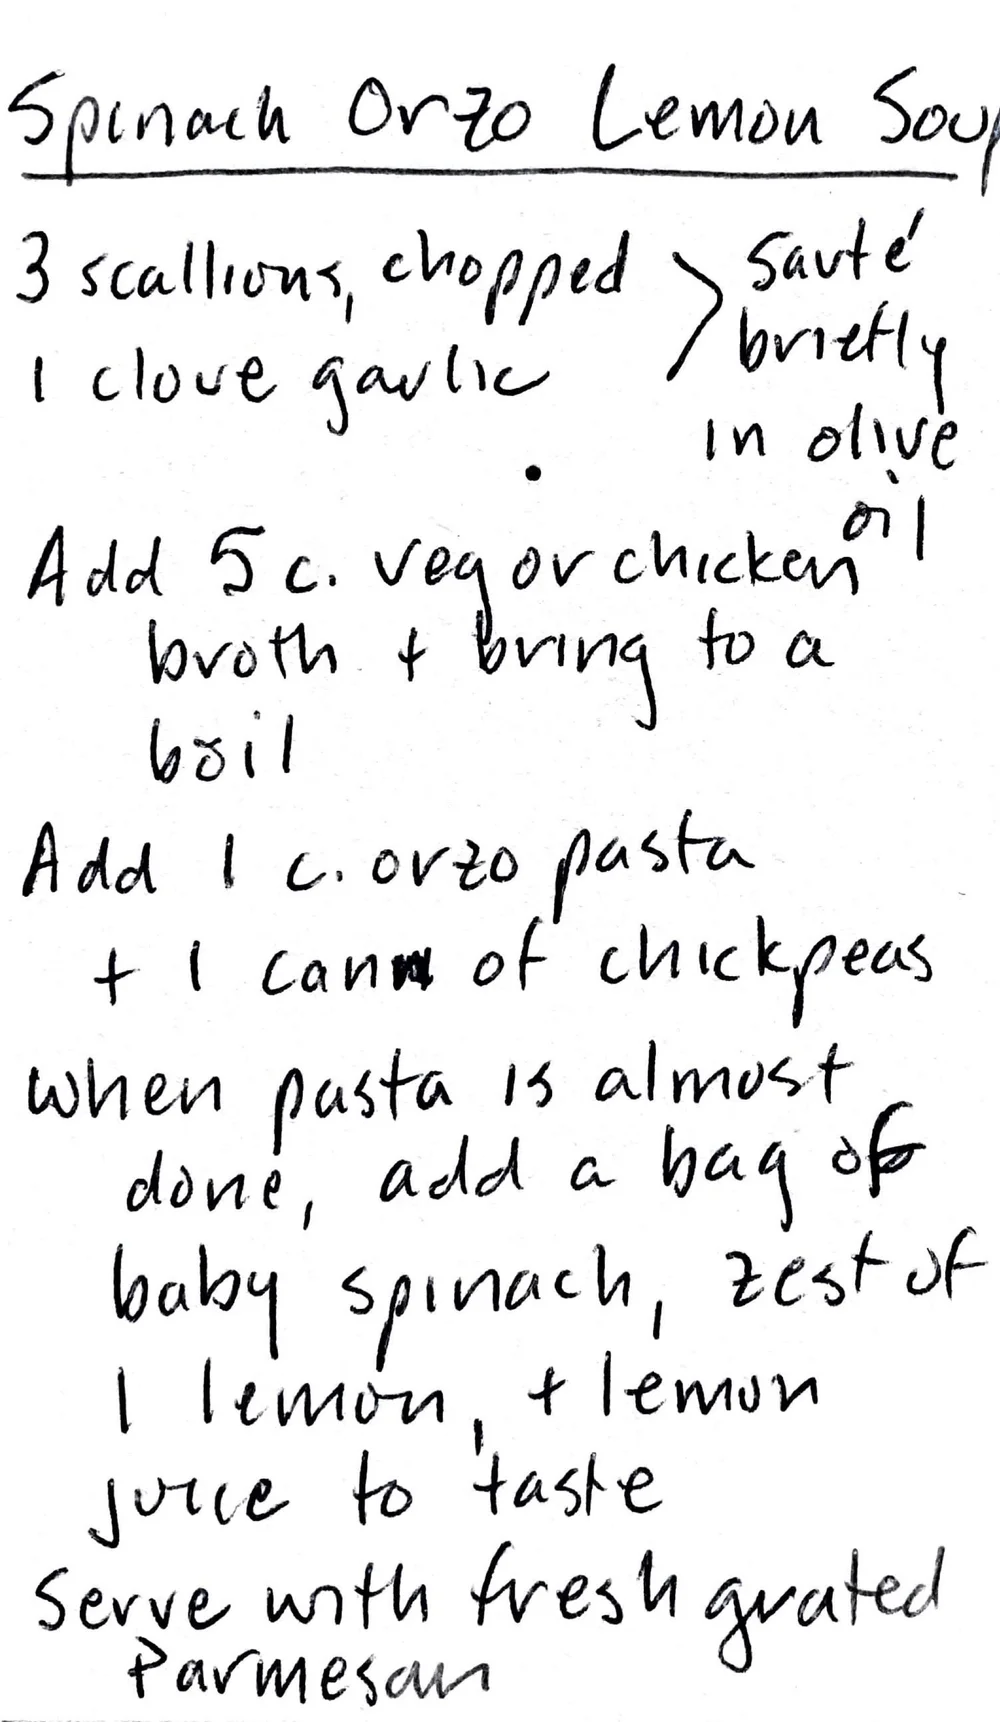 Spinach Orzo Lemon Soup
3 scallions, chopped
1 clove garlic
sauté
briefly
in olive
oil
Add 5 c. veg or chicken
broth + bring to a
boil
Add 1 c. orzo pasta
+ 1 can of chickpeas
when pasta is almost
done, add a bag of
baby spinach, zest of
1 lemon, + lemon
juice to taste
Serve with fresh grated
Parmesan